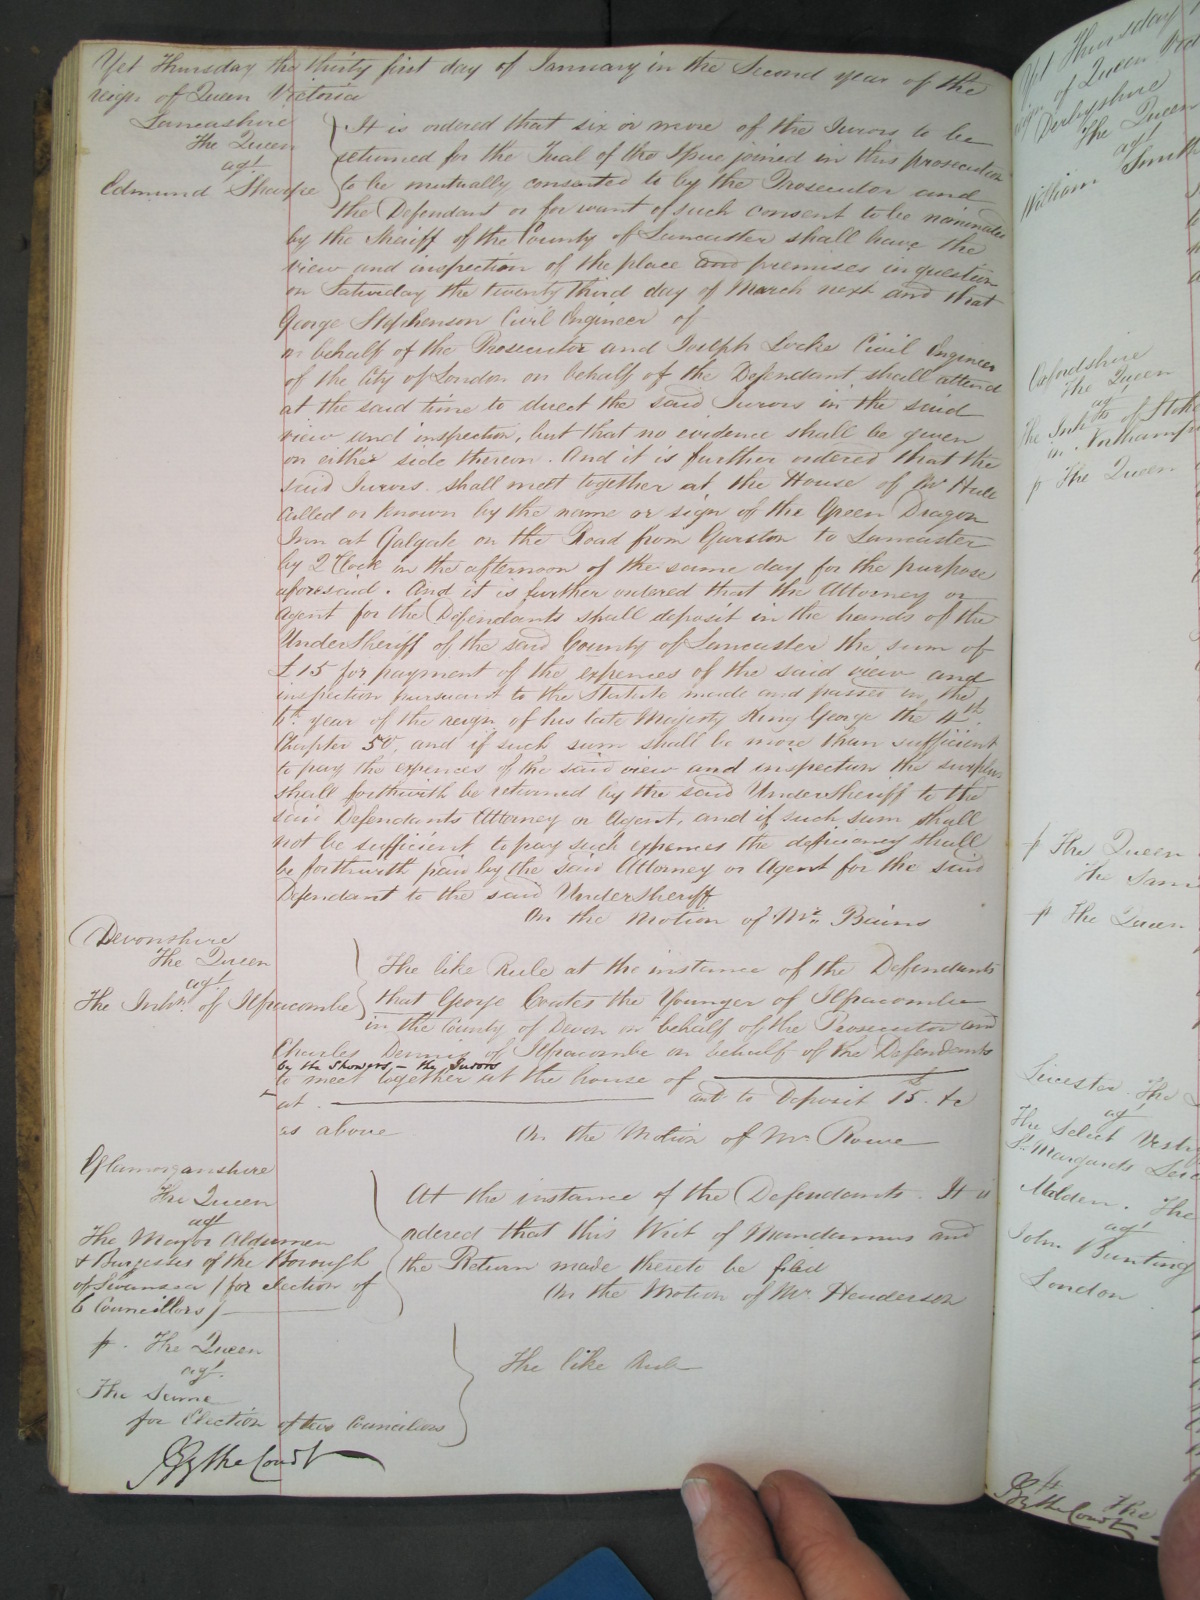 Yet Thursday the thirty first day of January in the Second year of the
reign of Queen Victoria
Lancashire
The Queen
agt
Edmund Sharpe
It is ordered that six or more of the Jurors to be
returned for the Trial of the Issue joined in this prosecution
to be mutually consented to by the Prosecutor and
the Defendant or for want of such consent to be nominated
by the Sheriff of the County of Lancaster shall have the
view and inspection of the place and premises in question
on Saturday the twenty third day of March next and that
George Stephenson Civil Engineer of
on behalf of the Prosecutor and Joseph Locke Civil Engineer
of the City of London on behalf of the Defendant shall attend
at the said time to direct the said Jurors in the said
view and inspection, but that no evidence shall be given
on either side thereon. And it is further ordered that the
said Jurors shall meet together at the House of Mr
called or known by the name or sign of the Green Dragon
Inn at Galgate on the Road from Garston to Lancaster
by 2 Clock in the afternoon of the same day for the purpose
aforesaid. And it is further ordered that the Attorney or
Agent for the Defendants shall deposit in the hands of the
UnderSheriff of the said County of Lancaster the sum of
£15 for payment of the expences of the said view and
inspection pursuant to the Statute made and passed in the
6th year of the reign of his late Majesty King George the 4th
Chapter 50, and if such sum shall be more than sufficient
to pay the expences of the said view and inspection the surplus
shall forthwith be returned by the said UnderSheriff to the
said Defendants Attorney or Agent, and if such sum shall
not be sufficient to pay such expences the deficiency shall
be forthwith paid by the said Attorney or Agent for the said
Defendant to the said UnderSheriff
On the Motion of Mr. Bains
Devonshire
The Queen
agt
The Inhts. of Ilfracombe
The like Rule at the instance of the Defendants
that George Coates the Younger of Ilfracombe
in the County of Devon on behalf of the Prosecutor and
Charles Dennis of Ilfracombe on behalf of the Defendants
by the Showers – the Jurors
to meet together at the house of
at and to Deposit 15£ &c
as above
On the Motion of Mr. Rowe
Glamorganshire
The Queen
agt
The Mayor Aldermen
& Burgesses of the Borough
of Swansea (for election of
6 Councillors)
At the instance of the Defendants. It is
ordered that this Writ of Mandamus and
the Return made thereto be filed
On the Motion of Mr. Henderson
p. The Queen
agt.
The Same
for Election of two Councillors
The like Rule
By the Court
Yet Thursday
of Queen
Derbyshire
The Queen
agt
William Smith
Oxfordshire
The Queen
agt
The Inhts of Stoke
in Northampt
p The Queen
p The Queen
The Same
p The Queen
Leicester. The
agt
The Select Vestry
St Margarets Leic
Malden. The
agt
John Bunting
London
The
By the Court